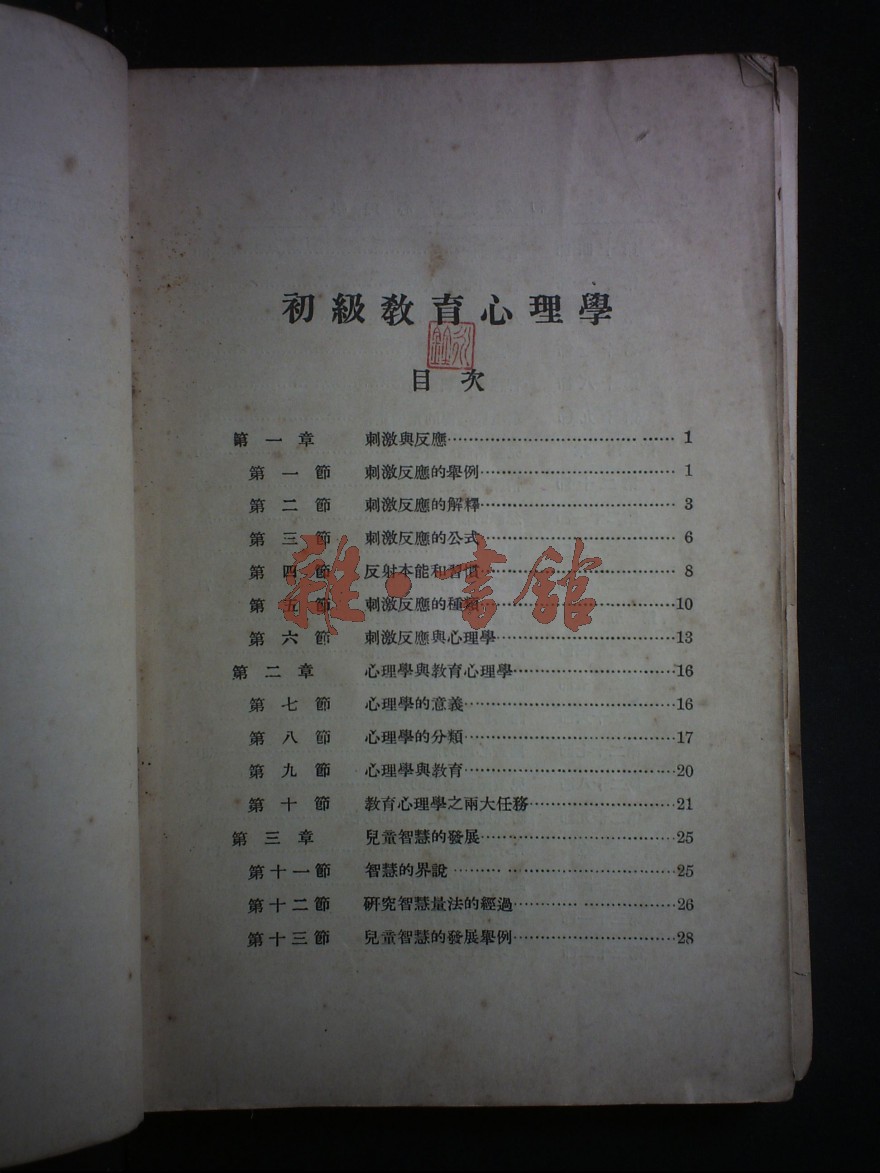 初級教育心理學
目次
第一章 刺激與反應 1
第一節 刺激反應的舉例 1
第二節 刺激反應的解釋 3
第三節 刺激反應的公式 6
第四節 反射本能和習慣 8
第五節 刺激反應的種類 10
第六節 刺激反應與心理學 13
第二章 心理學與教育心理學 16
第七節 心理學的意義 16
第八節 心理學的分類 17
第九節 心理學與教育 20
第十節 教育心理學之兩大任務 21
第三章 兒童智慧的發展 25
第十一節 智慧的界說 25
第十二節 研究智慧量法的經過 26
第十三節 兒童智慧的發展舉例 28
雜·書館